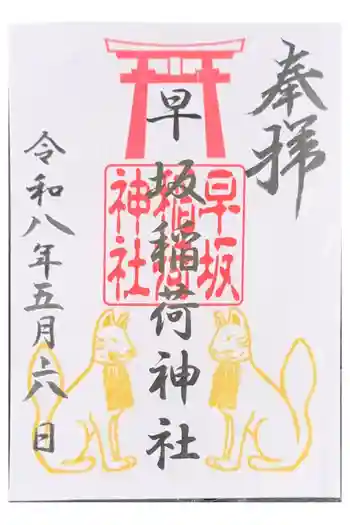 奉拝
早坂稲荷神社
早坂
稲荷
神社
令和八年五月十六日